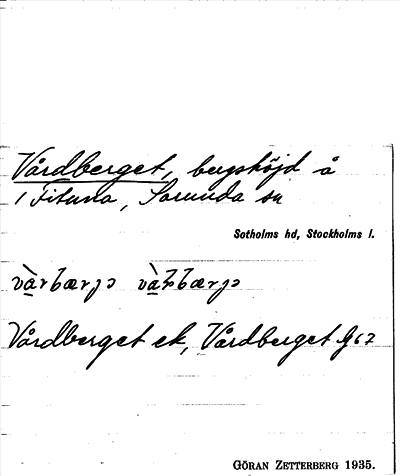 Vårdberget, bergshöjd å
1 Fituna, Sorunda sn
Sotholms hd, Stockholms l.
Vårdberget ek, Vårdberget G 67
GÖRAN ZETTERBERG 1935.